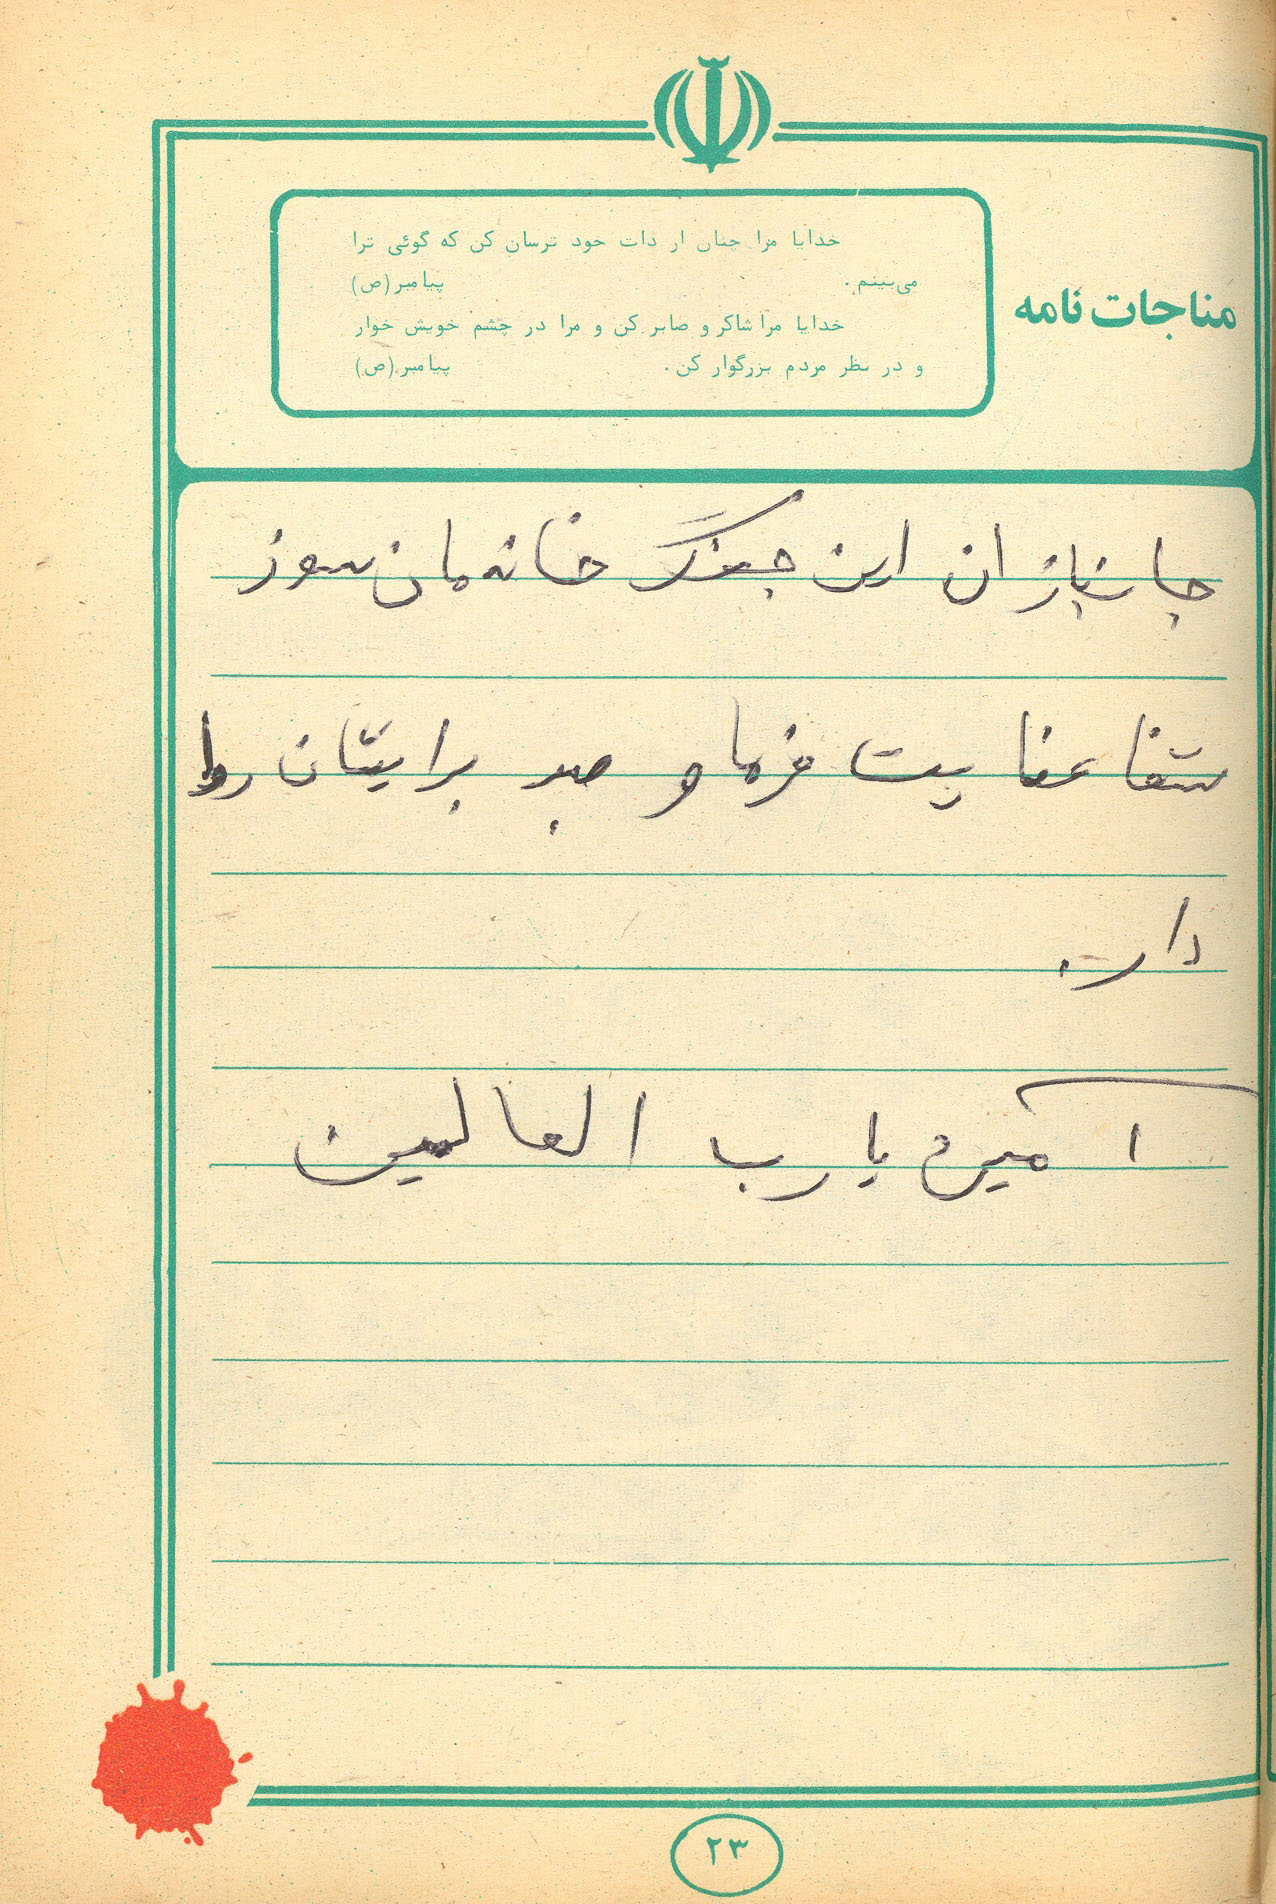 مناجات نامه
خدایا مرا چنان از ذات خود ترسان کن که گوئی ترا
می‌بینم. پیامبر(ص)
خدایا مرا شاکر و صابر کن و مرا در چشم خویش خوار
و در نظر مردم بزرگوار کن. پیامبر(ص)
جانبازان این جنگ خانه‌مان‌سوز
شفا عنایت فرما و صبر برایشان روا
دار.
آمین یا رب العالمین
۲۳